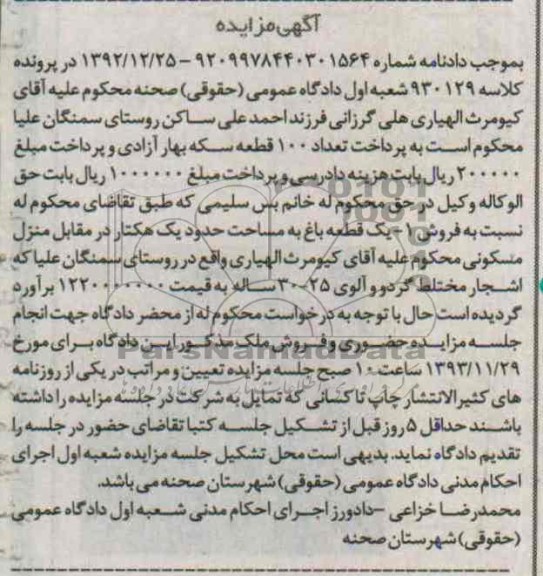 آگهی مزایده
بموجب دادنامه شماره ۹۲۰۹۹۷۸۴۴۰۳۰۱۵۶۴ – ۱۳۹۲/۱۲/۲۵ در پرونده
کلاسه ۹۳۰۱۲۹ شعبه اول دادگاه عمومی (حقوقی) صحنه محکوم علیه آقای
کیومرث الهیاری هلی گرزانی فرزند احمد علی ساکن روستای سمنگان علیا
محکوم است به پرداخت تعداد ۱۰۰ قطعه سکه بهار آزادی و پرداخت مبلغ
۲۰۰۰۰۰ ریال بابت هزینه دادرسی و پرداخت مبلغ ۱۰۰۰۰۰۰ ریال بابت حق
الوکاله وکیل در حق محکوم له خانم بس سلیمی که طبق تقاضای محکوم له
نسبت به فروش ۱- یک قطعه باغ به مساحت حدود یک هکتار در مقابل منزل
مسکونی محکوم علیه آقای کیومرث الهیاری واقع در روستای سمنگان علیا که
اشجار مختلط گردو و آلوی ۲۵-۳۰ ساله به قیمت ۱۲۲۰۰۰۰۰۰۰ برآورد
گردیده است حال با توجه به درخواست محکوم له از محضر دادگاه جهت انجام
جلسه مزایده حضوری و فروش ملک مذکور این دادگاه برای مورخ
۱۳۹۳/۱۱/۲۹ ساعت ۱۰ صبح جلسه مزایده تعیین و مراتب در یکی از روزنامه
های کثیرالانتشار چاپ تا کسانی که تمایل به شرکت در جلسه مزایده را داشته
باشند حداقل ۵ روز قبل از تشکیل جلسه کتبا تقاضای حضور در جلسه را
تقدیم دادگاه نماید. بدیهی است محل تشکیل جلسه مزایده شعبه اول اجرای
احکام مدنی دادگاه عمومی (حقوقی) شهرستان صحنه می باشد.
محمدرضا خزاعی –دادورز اجرای احکام مدنی شعبه اول دادگاه عمومی
(حقوقی) شهرستان صحنه
ParsNamadData